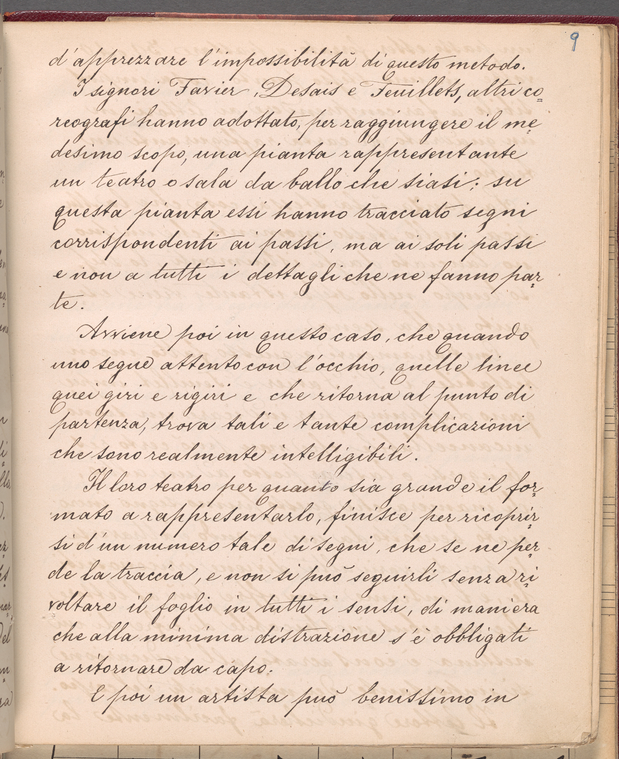 9
d'apprezzare l'impossibilità di questo metodo.
I signori Favier, Desais e Feuillets, altri co=
reografi hanno adottato, per raggiungere il me=
desimo scopo, una pianta rappresentante
un teatro o sala da ballo che siasi: su
questa pianta essi hanno tracciato segni
corrispondenti ai passi, ma ai soli passi
e non a tutti i dettagli che ne fanno par=
te.
Avviene poi in questo caso, che quando
uno segue attento con l'occhio, quelle linee
quei giri e rigiri e che ritorna al punto di
partenza, trova tali e tante complicazioni
che sono realmente intelligibili.
Il loro teatro per quanto sia grande il for=
mato a rappresentarlo, finisce per ricoprir
si d'un numero tale di segni, che se ne per=
de la traccia, e non si può seguirli senza ri=
voltare il foglio in tutti i sensi, di maniera
che alla minima distrazione s'è obbligati
a ritornare da capo.
E poi un artista può benissimo in